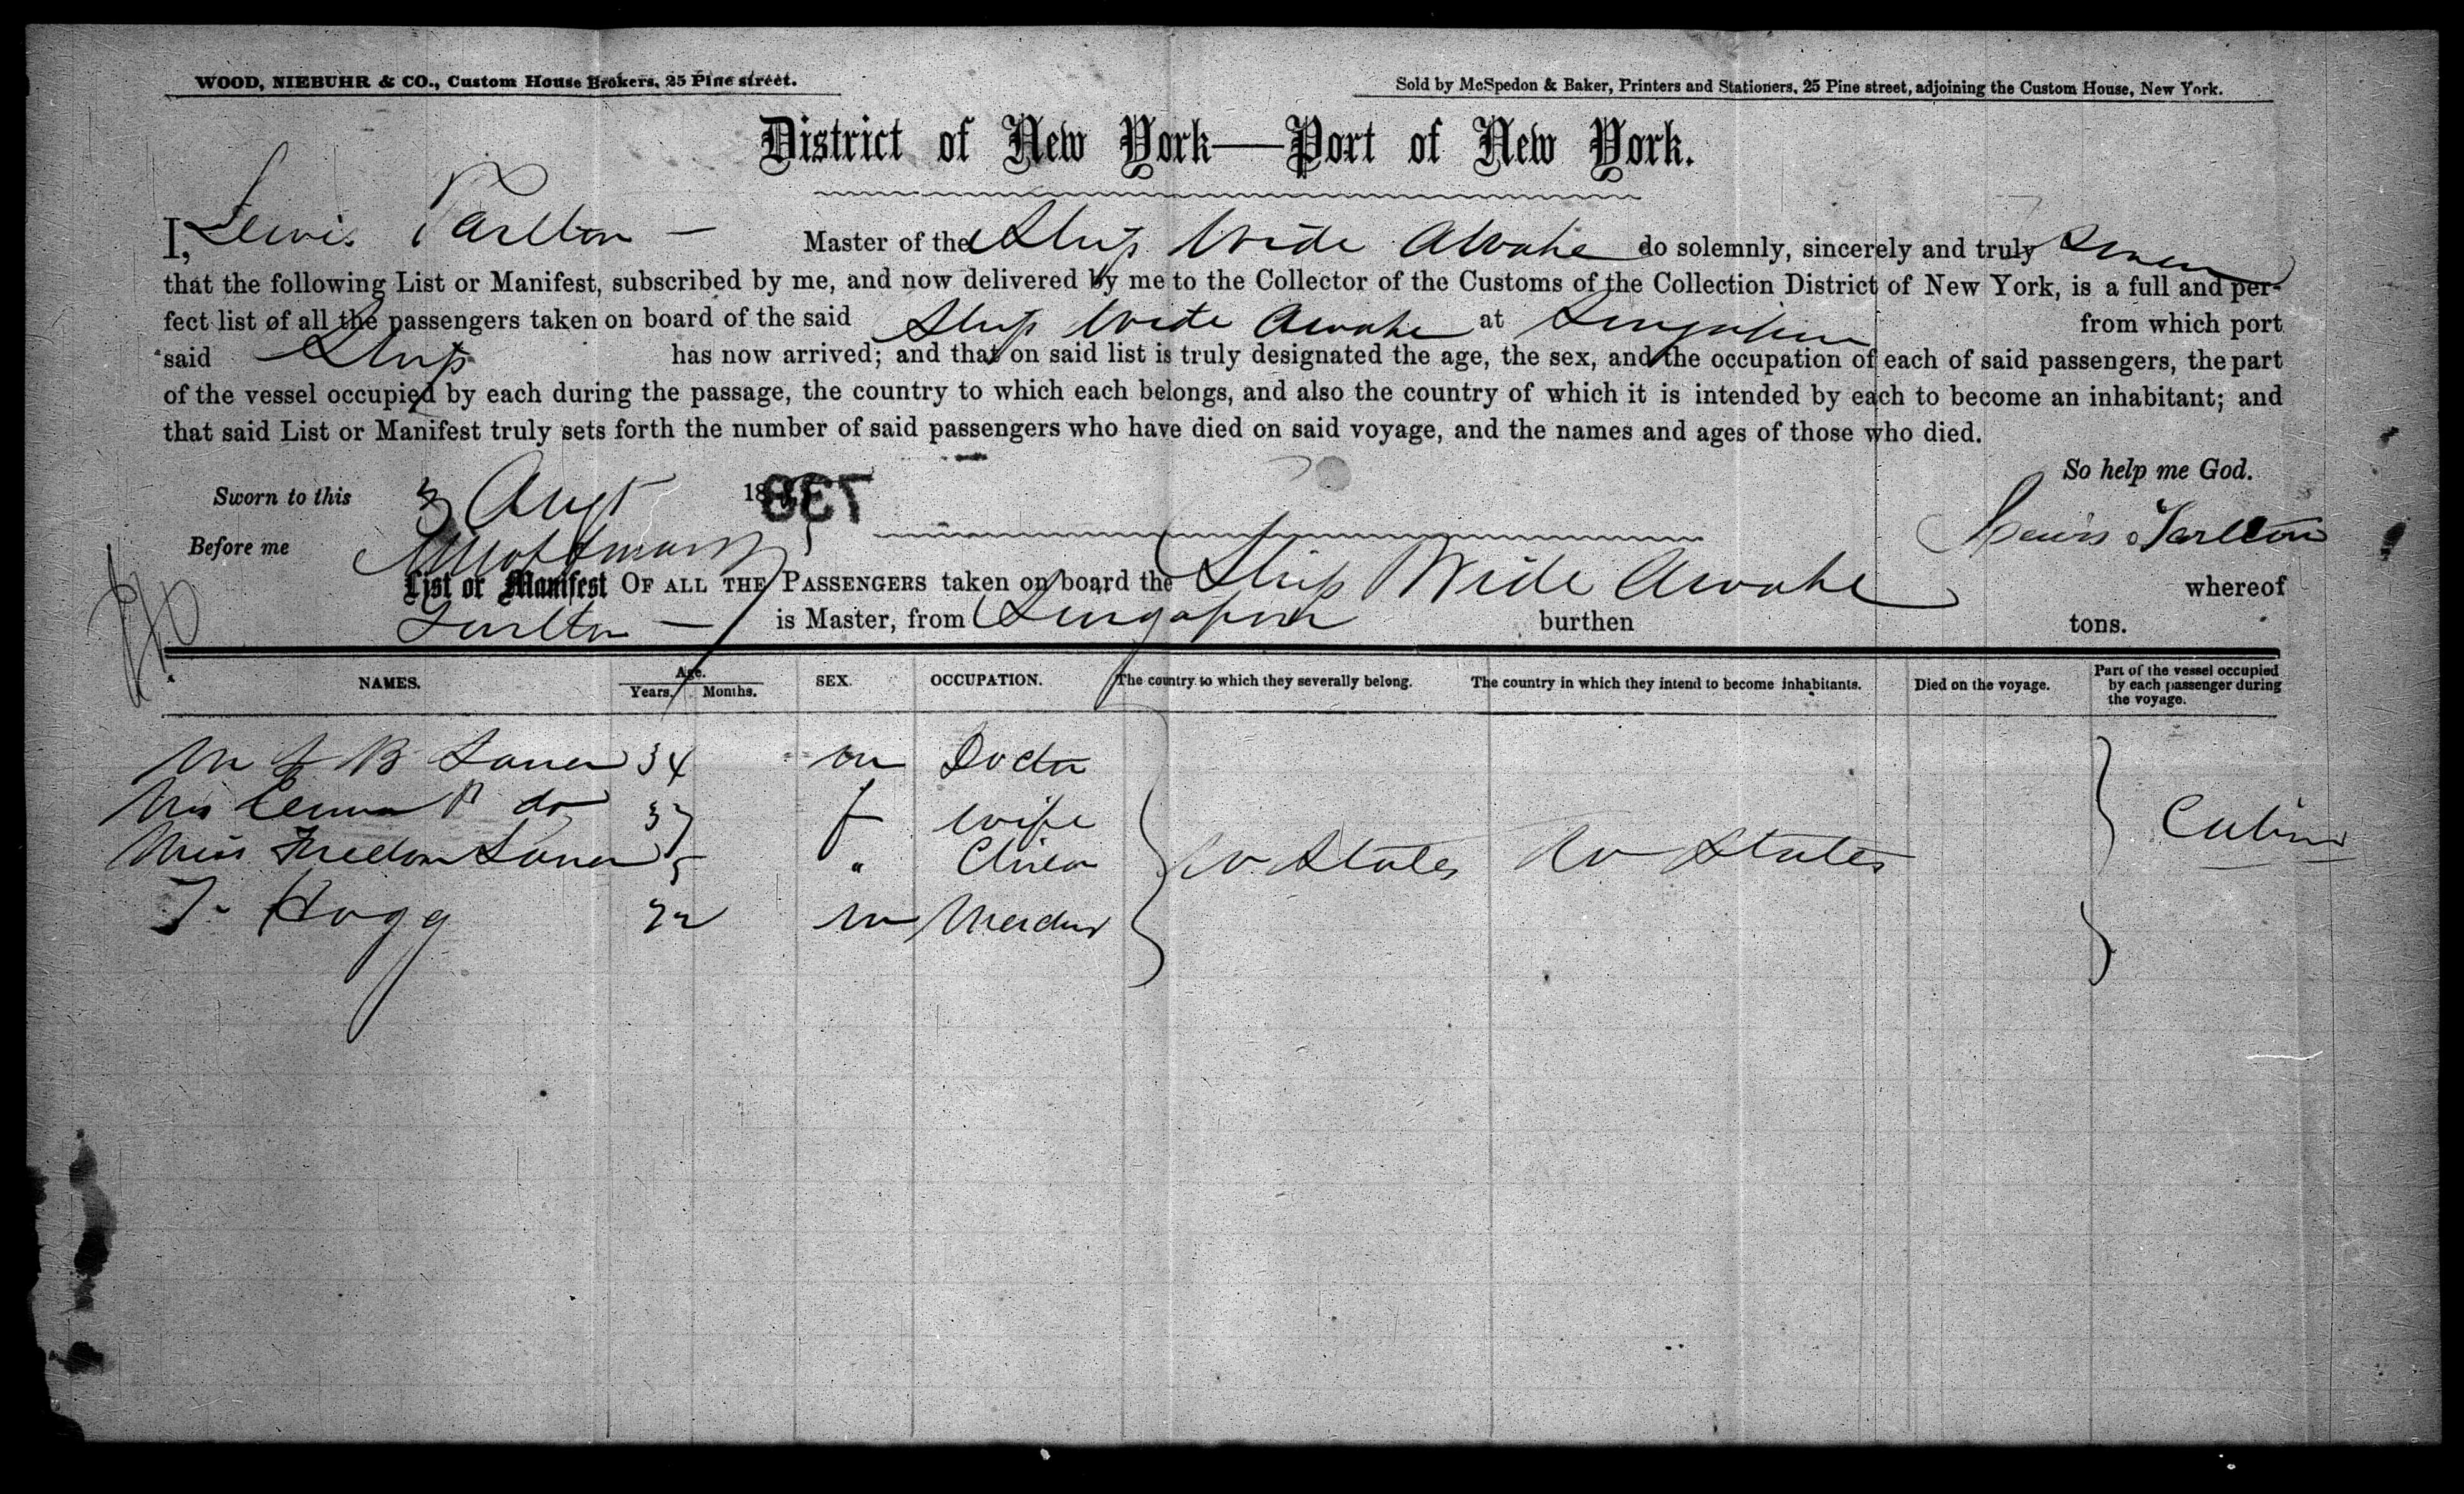 WOOD, NIEBUHR & CO., Custom House Brokers, 25 Pine street.
Sold by McSpedon & Baker, Printers and Stationers, 25 Pine street, adjoining the Custom House, New York.
District of New York—Port of New York.
I, Lewis Tarlton — Master of the Ship Wide Awake do solemnly, sincerely and truly swear
that the following List or Manifest, subscribed by me, and now delivered by me to the Collector of the Customs of the Collection District of New York, is a full and per-
fect list of all the passengers taken on board of the said Ship Wide Awake at Singapore from which port
said Ship has now arrived; and that on said list is truly designated the age, the sex, and the occupation of each of said passengers, the part
of the vessel occupied by each during the passage, the country to which each belongs, and also the country of which it is intended by each to become an inhabitant; and
that said List or Manifest truly sets forth the number of said passengers who have died on said voyage, and the names and ages of those who died.
So help me God.
Sworn to this 3 Augt 18 738
Lewis Tarlton
Before me
List or Manifest OF ALL THE PASSENGERS taken on board the Ship Wide Awake whereof
Tarlton — is Master, from Singapore burthen tons.
NAMES. Age. Years. Months. SEX. OCCUPATION. The country to which they severally belong. The country in which they intend to become inhabitants. Died on the voyage. Part of the vessel occupied by each passenger during the voyage.
B 34 m Doctor
Mrs Emma P do 37 f Wife
Miss 5 " Child U States U States Cabin
T. Hogg 22 m